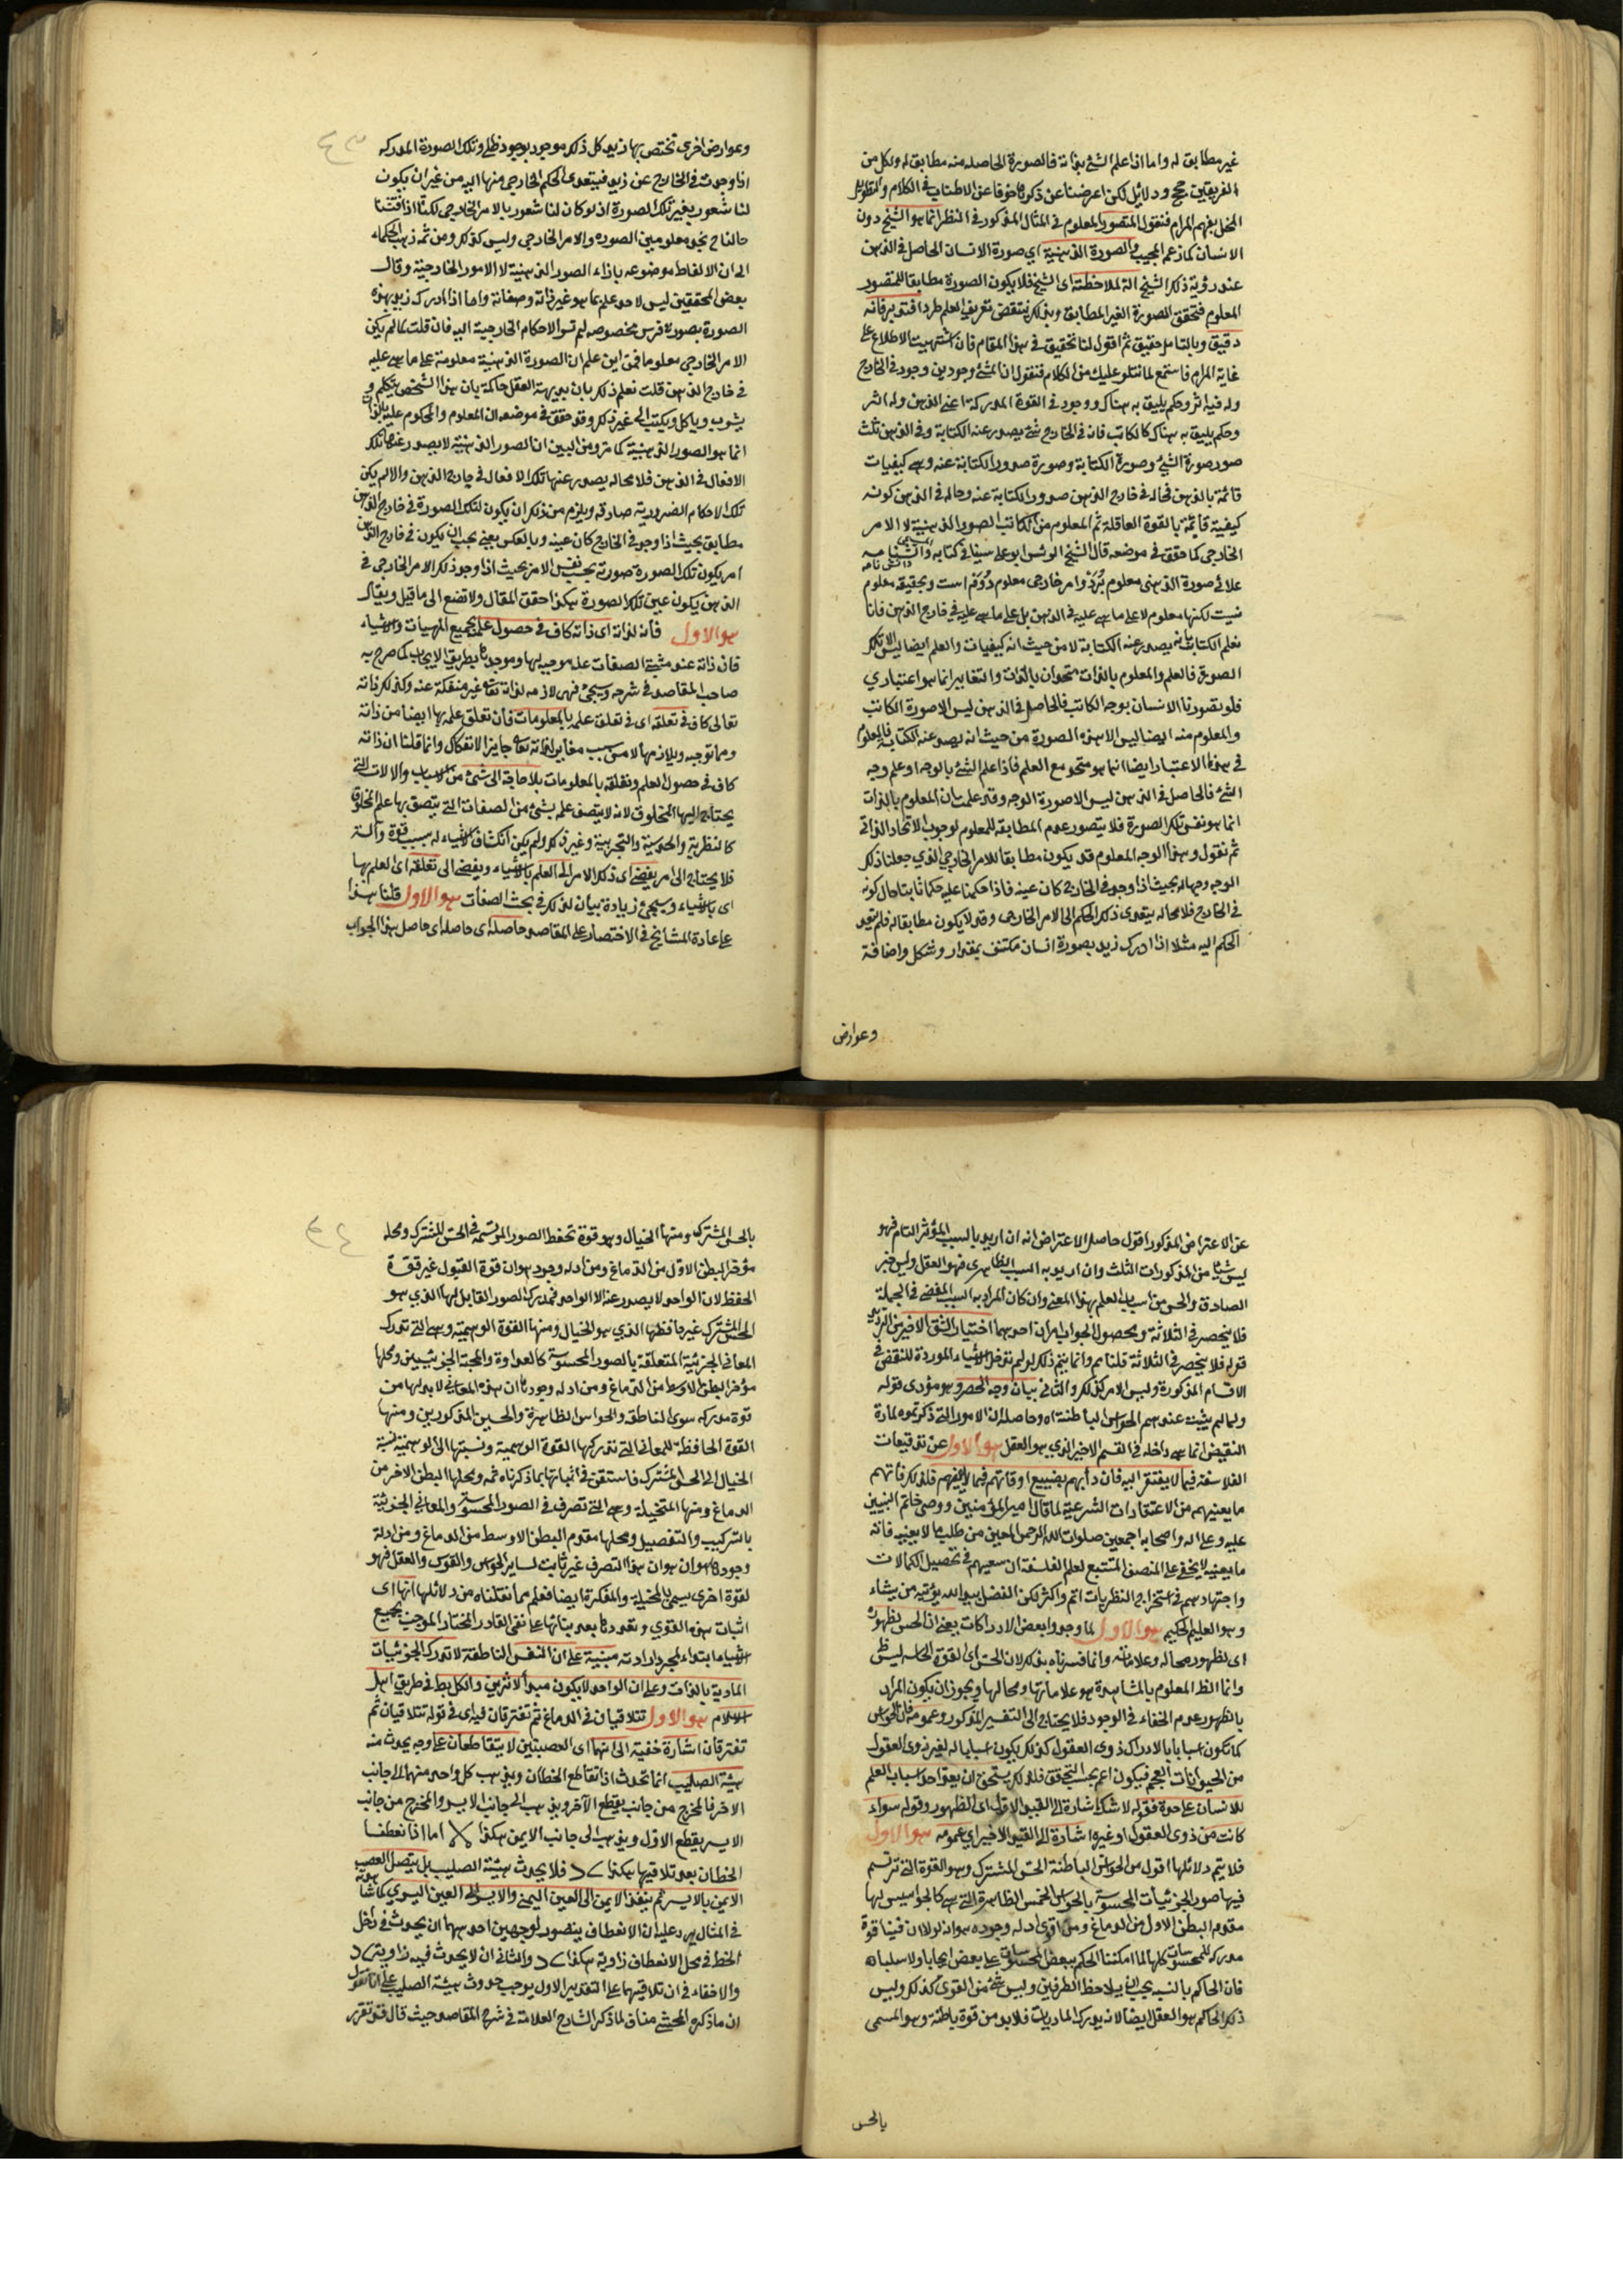 غير مطابق له واما اذا علم الشئ بذاته فالصورة الحاصله منه مطابق له ولكل من
الفريقين حجج ودلائل لكن اعرضنا عن ذكرها خوفا عن الاطناب فى الكلام والتطويل
المخل بفهم المرام فنقول المتصور المعلوم فى المثال المذكور فى النظر انما هو الشيخ دون
الانسان كما زعم المجيب والصورة الذهنية اي صورة الانسان الحاصل فى الذهن
عند رؤية ذلك الشيخ الة لملاحظته اى الشيخ فلا يكون الصورة مطابقا للمتصور
المعلوم فتحقق الصورة الغير المطابق وبذلك ينتقض تعريف العلم طردا فتدبر فانه
دقيق وبالتامل حقيق ثم اقول لنا تحقيق فى هذا المقام فان اشتهيت الاطلاع على
غاية المرام فاستمع لما نتلو عليك من الكلام فنقول ان للشئ وجودين وجود فى الخارج
وله فيه اثر وحكم يليق به هناك ووجود فى القوة المدركة اعنى الذهن وله اثر
وحكم يليق به هناك كالكاتب فان فى الخارج شئ يصدر عنه الكتابة وفى الذهن ثلث
صور صورة الشئ وصورة الكتابة وصورة صدور الكتابة عنه وهى كيفيات
قائمة بالذهن فحاله فى خارج الذهن صدور الكتابة عنه وحاله فى الذهن كونه
كيفية قائمة بالقوة العاقلة ثم المعلوم من الكاتب الصور الذهنية لا الامر
الخارجى كما حقق فى موضعه قال الشيخ الرئيس ابو على سينا فى كتابه
دانش نامه
علائى صورة الذهنى معلوم بُرَدْ وامر خارجى معلوم دُوُمْ است وبحقيقه معلوم
نيست لكنها معلوم لا على ما هى عليه فى الذهن بل على ما هى عليه فى خارج الذهن فانا
نعلم الكتاب بانه يصدر عنه الكتابة لا من حيث انه كيفيات والعلم ايضا ليس الا تلك
الصورة فالعلم والمعلوم بالذات متحدان بالذات والتغاير انما هو اعتبارى
فلو تصورنا الانسان بوجه الكاتب فالحاصل فى الذهن ليس الا صورة الكاتب
والمعلوم منه ايضا ليس الا هذه الصورة من حيث انه يصدر عنه الكتابة فالمعلوم
فى هذا الاعتبار ايضا انما هو متحد مع العلم فاذا علم الشئ بالوجه او علم وجه
الشئ فالحاصل فى الذهن ليس الا صورة الوجه وقد علمت بان المعلوم بالذات
انما هو نفس تلك الصورة فلا يتصور عدم المطابقه للمعلوم لوجوب الاتحاد الذاتى
ثم نقول وهذا الوجه المعلوم قد يكون مطابقا للامر الخارجى الذى جعلنا ذلك
الوجه وجها له بحيث اذا وجد فى الخارج كان عينه فاذا حكمنا عليه حكما ثابتا حال كونه
فى الخارج فلا محاله يتعدى ذلك الحكم الى الامر الخارجى وقد لا يكون مطابقا له فلم يتعد
الحكم اليه مثلا اذا ادرك زيد بصورة انسان مكتنف بمقدار وشكل واضافة
وعوارض
وعوارض اخرى تختص بها زيد كل ذلك موجود بوجود ظلى وتلك الصورة المدركه
اذا وجدت فى الخارج عن زيد فيتعدى الحكم الخارجى منها اليه من غير ان يكون
لنا شعور بغير تلك الصورة اذ لو كان لنا شعور بالامر الخارجى لكنا اذا فتشنا
حالنا نجد معلومين الصوره والامر الخارجى وليس كذلك ومن ثمه ذهب الحكماء
الى ان الالفاظ موضوعه بازاء الصور الذهنية لا الامور الخارجية وقال
بعض المحققين ليس لاحد علم بما هو غير ذاته وصفاته واما اذا ادرك زيد بهذه
الصورة بصورة فرس مخصوصه لم تسر الاحكام الخارجية اليه فان قلت لما لم يكن
الامر الخارجى معلوما فمن اين علم ان الصورة الذهنية معلومة على ما هى عليه
فى خارج الذهن قلت نعلم ذلك بان بديهة العقل حاكمة بان هذا الشخص يتكلم و
يشرب وياكل ويكتب الى غير ذلك وقد حقق فى موضعه ان المعلوم والمحكوم عليه بالذات
انما هو الصور الذهنية كما مر ومن البين ان الصور الذهنية لا يصدر عنها تلك
الافعال فى الذهن فلا محاله يصدر عنها تلك الافعال فى خارج الذهن والا لم يكن
تلك الاحكام الضرورية صادقه ويلزم من ذلك ان يكون لتلك الصورة فى خارج الذهن
مطابق بحيث اذا وجد فى الخارج كان عينه وبالعكس يعنى يجب ان يكون فى خارج الذهن
امر يكون تلك الصورة صورته بحسب نفس الامر بحيث اذا وجد ذلك الامر الخارجى فى
الذهن يكون عين تلك الصورة هكذا حقق المقال ولا تضع الى ما قيل ويقال
هو الاول فانه لذاته اى ذاته كاف فى حصول علمه بجميع المهيات والاشياء
فان ذاته عند مثبتى الصفات علة موجبه لها وموجد لها بطريق الايجاب كما صرح به
صاحب المقاصد فى شرحه وسيجئ فهى لازمه لذاته تعالى غير منفكة عنه وكذلك ذاته
تعالى كاف فى تعلقه اى فى تعلق علمه بالمعلومات فان تعلق علمه بها ايضا من ذاته
ومما توجبه ويلازمها لا من سبب مغاير لذاته تعالى جايز الانفكاك وانما قلنا ان ذاته
كاف فى حصول العلم وتعلقه بالمعلومات بلا حاجة الى شئ من الاسباب والالات التى
يحتاج اليها المخلوق لانه لا يتصف علمه بشئ من الصفات التى يتصف بها علم المخلوق
كالنظرية والحدسية والتجربية وغير ذلك ولم يكن انكشاف الاشياء له بسبب قوة والة
فلا يحتاج الى امر يفضى اى ذلك الامر الى العلم بالاشياء ويفضى الى تعلقه اى العلم بها
اى بالاشياء وسيجئ زيادة بيان لذلك فى بحث الصفات هو الاول قلنا هذا
على عادة المشايخ فى الاختصار على المقاصد حاصله اى حاصل هذا الجواب
عن الاعتراض المذكور اقول حاصل الاعتراض انه ان اريد بالسبب المؤثر التام فهو
ليس شيئا من المذكورات الثلث وان اريد به السبب الظاهرى فهو العقل وليس خبر
الصادق والحس من اسباب العلم بهذا المعنى وان كان المراد به السبب المفضى فى الجملة
فلا ينحصر فى الثلاثة ومحصول الجواب امران احدهما اختيار الشق الاخير من الترديد
قوله فلا ينحصر فى الثلاثة قلنا نعم وانما يتم ذلك لو لم تدخل الاشياء الموردة للنقض فى
الاقسام المذكورة وليس الامر كذلك والثانى بيان وجه الحصر وهو مؤدى قوله
ولما لم يثبت عندهم الحواس الباطنة اه وحاصله ان الامور التى ذكرتموه لمادة
النقيض انما هى داخله فى القسم الاخير الذى هو العقل هو الاول عن تدقيقات
الفلاسفه فيما لا يفتقر اليه فان دأبهم تضييع اوقاتهم فيما لا يفهم فلذلك فاتهم
ما يعنيهم من الاعتقادات الشرعية كما قال امير المؤمنين ووصى خاتم النبيين
عليه وعلى اله واصحابه اجمعين صلوات الله الرحمن المعين من طلب ما لا يعنيه فاته
ما يعنيه لا يخفى على المنصف المتتبع لعلم الفلسفة ان سعيهم فى تحصيل الكمالات
واجتهادهم فى استخراج النظريات اتم واكثر لكن الفضل بيد الله يؤتيه من يشاء
وهو العليم الحكيم هو الاول لما وجدوا بعض الادراكات يعنى ان الحس لظهوره
اى لظهور محاله وعلاماته وانما فسرناه بذلك لان الحس اى القوة الحاسه ليس ظ
وانما الظ المعلوم بالمشاهدة هو علاماتها ومحالها ويجوز ان يكون المراد
بالظهور عدم الخفاء فى الوجود فلا يحتاج الى التفسير المذكور وعمومه فان الحواس
كما تكون اسبابا بالادراك ذوى العقول كذلك يكون اسبابا له لغير ذوى العقول
من الحيوانات العجم فيكون اعم بحسب التحقق فلذلك يستحق ان يعد احد اسباب العلم
للانسان على حدة فقوله لا شك اشارة الى القيد الاول اى الظهور وقوله سواء
كانت من ذوى العقول او غيره اشارة الى القيد الاخير اى عمومه هو الاول
فلا يتم دلائلها اقول من الحواس الباطنة الحس المشترك وهو القوة التى ترتسم
فيها صور الجزئيات المحسوسة بالحواس الخمس الظاهرة التى هى كالجواسيس لها
مقدم البطن الاول من الدماغ ومن اقوى ادله وجوده هو انه لولا ان فينا قوة
مدركه للمحسوسات كلها لما امكننا الحكم ببعض المحسوسات على بعض ايجابا ولا سلبا اه
فان الحاكم بالنسبه يجب ان يلاحظ الطرفين وليس شئ من القوى كذلك وليس
ذلك الحاكم هو العقل ايضا لانه يدرك الماديات فلا بد من قوة باطنة وهو المسمى
بالحس
بالحس المشترك ومنها الخيال وهو قوة تحفظ الصور المرتسمة فى الحس المشترك ومحله
مؤخر البطن الاول من الدماغ ومن ادله وجوده هو ان قوة القبول غير قوة
الحفظ لان الواحد لا يصدر عنه الا الواحد فمدرك الصور القابل لها الذى هو
الحس المشترك غير حافظها الذى هو الخيال ومنها القوة الوهمية وهى التى تدرك
المعانى الجزئية المتعلقة بالصور المحسوسة كالعداوة والمحبة الجزئيتين ومحلها
مؤخر البطن الاوسط من الدماغ ومن ادله وجودها ان هذه المعانى لا بد لها من
قوة مدركه سوى الناطقه والحواس الظاهرة والحسين المذكورين ومنها
القوة الحافظة للمعانى التى تدركها القوة الوهمية ونسبتها الى الوهمية نسبة
الخيال الى الحس المشترك فاستقن فى اثباتها بما ذكرناه ثمه ومحلها البطن الاخر من
الدماغ ومنها المتخيلة وهى التى تصرف فى الصور المحسوسة والمعانى الجزئية
بالتركيب والتفصيل ومحلها مقدم البطن الاوسط من الدماغ ومن ادلة
وجودها هو ان هذا التصرف غير ثابت لساير الحواس والقوى والعقل فهو
لقوة اخرى يسمى بالمخيلة والمفكرة ايضا فعلم مما نقلناه من دلائلها انها اى
اثبات هذه القوى وتعددها بعد بنائها على نفى القادر المختار الموجب لجميع
الاشياء ابتداء بمجرد ارادته مبنية على ان النفس الناطقة لا تدرك الجزئيات
المادية بالذات وعلى ان الواحد لا يكون مبدأ لاثرين والكل بط فى طريق اهل
الاسلام هو الاول تتلاقيان فى الدماغ ثم تفترقان فيؤدى فى قوله تتلاقيان ثم
تفترقان اشارة خفية الى انهما اى العصبتين لا يتقاطعان على وجه يحدث منه
هيئة الصليب انما تحدث اذا تقاطع الخطان ويذهب كل واحد منهما الى جانب
الاخر فالمخرج من جانب يقطع الآخر ويذهب الى جانب الايسر والمخرج من جانب
الايسر يقطع الاول ويذهب الى جانب الايمن هكذا اما اذا نعطفا
الخطان بعد تلاقيها هكذا فلا يحدث هيئة الصليب بل يتصل العصب
الايمن بالايسر ثم ينفذ الايمن الى العين اليمنى والايسر الى العين اليسرى كما شاهدته
فى المثال يرد عليه ان الانعطاف يتصور لوجهين احدهما ان يحدث فى داخل
الخط فى محل الانعطاف زاوية هكذا والثانى ان لا يحدث فيه زاوية
والاخفاء فى ان تلاقيهما على التقدير الاول يوجب حدوث هيئة الصليب على انا نقول
ان ما ذكره المحشى مناف لما ذكره الشارح العلامة فى شرح المقاصد حيث قال فقد تقرر